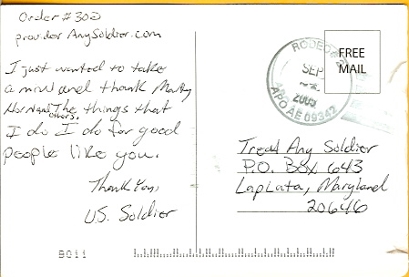 Order #302
provider AnySoldier.com
I just wanted to take
a min and thank Marty
Horn and others. The things that
I do I do for good
people like you.
Thank You,
U.S. Soldier
SEP
2003
APO AE 09342
FREE
MAIL
Treat Any Soldier
P.O. Box 643
LaPlata, Maryland
20646
8011